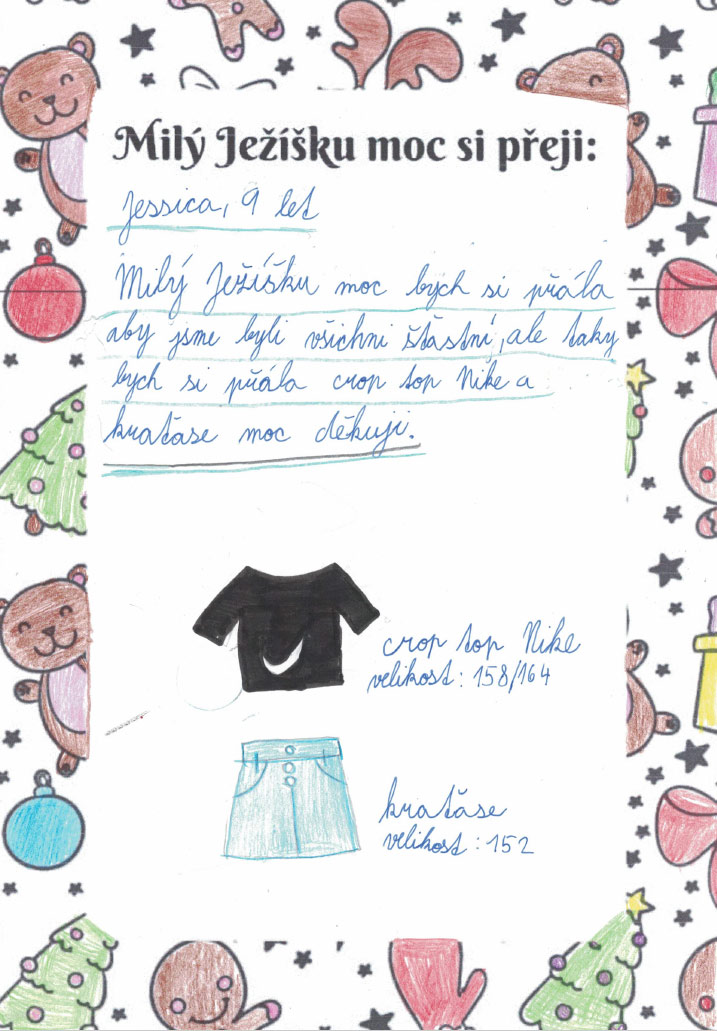 Milý Ježíšku moc si přeji:
Jessica, 9 let
Milý Ježíšku moc bych si přála
aby jsme byli všichni šťastní, ale taky
bych si přála crop top Nike a
kraťase moc děkuji.
crop top Nike
velikost: 158/164
kraťase
velikost: 152